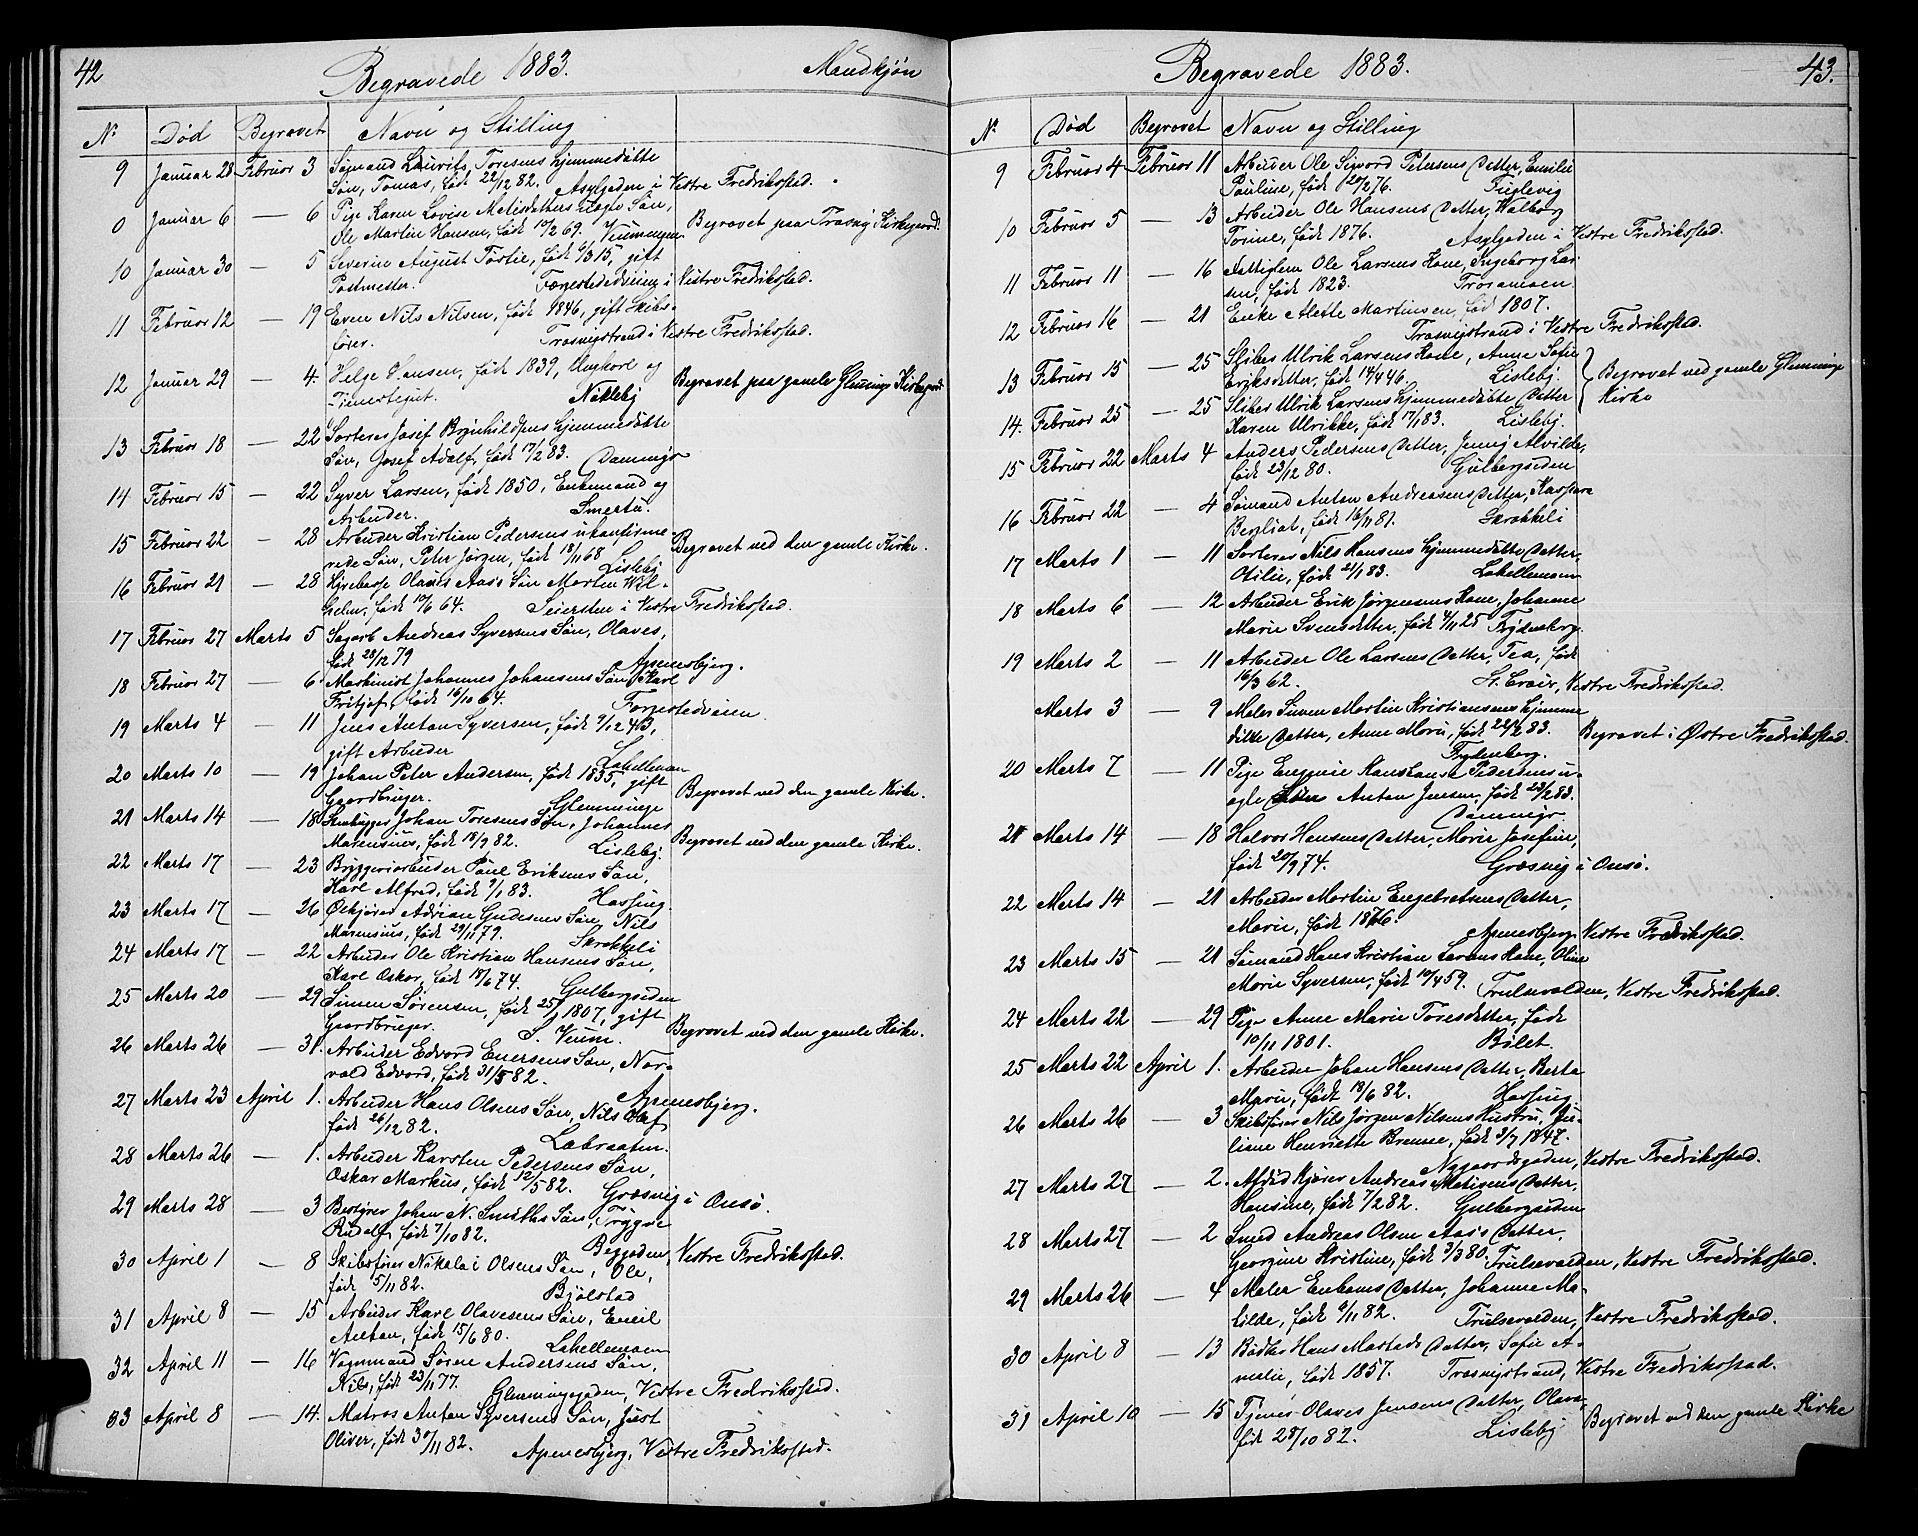 42
Begravede 1883.
Mandkjøn
No Død Begravet Navn og Stilling
9 Januar 28 Februar 3 Sømand Laurits Toresens hjemmedøbte
Søn, Tomas, født 22/12 82. Asylgaden i Vestre Fredrikstad.
0 Januar 6 — 6 Pige Karen Lovise uægte Søn,
Ole Martin Hansen, født 10/2 69. Veumengen Begravet paa Trosvig Kirkegaard.
10 Januar 30 — 5 Severin August født 15, gift
Postmester. i Vestre Fredrikstad.
11 Februar 12 — 19 Even Nils Nilsen, født 1846, gift Skibs-
fører. Trosvigstrand i Vestre Fredrikstad.
12 Januar 29 — 4. Helge Hansen, født 1839, Ungkarl og
Begravet paa gamle Glemminge Kirkegaard
13 Februar 18 — 22 Sorterer Josef hjemmedøbte
Søn, Josef Adolf, født 17/2 83. Damminge
14 Februar 15 — 22 Syver Larsen, født 1850, Enkemand og
Arbeider. Smertu.
15 Februar 22 — 28 Arbeider Kristian Pedersens ukonfirme-
rede Søn, Peter Jørgen, født 18/11 68 Lisleby Begravet ved den gamle Kirke.
16 Februar 21 — 28 Olaves Aas's Søn Morten Wil-
helm, født 10/6 64. Seiersten i Vestre Fredrikstad.
17 Februar 27 Marts 5 Sagarb Andreas Syversens Søn, Olaves,
født 28/12 79 Apenesbjerg.
18 Februar 27 — 6 Maskinist Johannes Johansens Søn, Karl
Fritjof, født 16/10 64. Forstedveien
19 Marts 4 — 11 Jens Anton Syversen, født 9/12 43,
gift Arbeider Lahellemoen
20 Marts 10 — 19 Johan Peter Andersen, født 1835, gift
Gaardbruger. Glemminge Begravet ved den gamle Kirke.
21 Marts 14 — 18 Johan Toresens Søn, Johannes
Marensius, født 18/9 82. Lisleby. Begravet ved den gamle Kirke.
22 Marts 17 — 23 Bryggeriarbeider Paul Eriksens Søn,
Karl Alfred, født 9/1 83. Hassing.
23 Marts 17 — 26 Ølkjører Adrian Gudesens Søn, Nils
Marensius, født 29/11 79. Skrokkeli
24 Marts 17 — 22 Arbeider Ole Kristian Hansens Søn,
Karl Oskar, født 18/6 74. Gulbergseden
25 Marts 20 — 29 Simen Sørensen, født 25/1 1807, gift
Gaardbruger. S. Veum. Begravet ved den gamle Kirke.
26 Marts 26 — 31. Arbeider Edvard Enersens Søn, Nor-
vald Edvard, født 31/5 82.
Apenesbjerg.
27 Marts 23 April 1. Arbeider Hans Olsens Søn, Nils Olaf
født 26/12 82. Labraaten.
28 Marts 26 — 1. Arbeider Karsten Pedersens Søn,
Oskar Markus, født 12/5 82. Græsvig i Onsø.
29 Marts 28 — 3 Johan N. Smiths Søn, Trygve
Rudolf, født 7/10 82. Vestre Fredrikstad.
30 April 1 — 8 Skibsfører Nikolai Olsens Søn, Ole,
født 5/11 82. Bjølstad
31 April 8 — 15 Arbeider Karl Olavesens Søn, Emil
Anton, født 15/6 80. Lahellemoen
32 April 11 — 16 Vognmand Søren Andersens Søn,
Nils, født 23/11 77. Glemmingegaden, Vestre Fredrikstad.
33 April 8 — 14. Matros Anton Syversens Søn, Just
Oliver, født 30/11 82. Apenesbjerg, Vestre Fredrikstad.
43.
Begravede 1883.
No Død Begravet Navn og Stilling
9 Februar 4 Februar 11 Arbeider Ole Sigvard Petersens Datter, Emilie
Pauline, født 20/2 76. Fuglevig
10 Februar 5 — 13 Arbeider Ole Hansens Datter, Walborg
Torine, født 1876. Asylgaden i Vestre Fredrikstad.
11 Februar 11 — 16 Fattiglem Ole Larsens Kone, Ingeborg Lar-
sen, født 1823. Trosemoen
12 Februar 16 — 21 Enke Alette Martinsen, fød 1807.
Trosvigstrand i Vestre Fredrikstad.
13 Februar 15 — 25 Sliber Ulrik Larsens Kone, Anne Sofie
Eriksdatter, født 14/4 46. Lisleby. Begravet ved gamle Glemminge
14. Februar 25 — 25 Sliber Ulrik Larsens hjemmedøbte Datter Kirke
Karen Ulrikke, født 17/1 83. Lisleby.
15 Februar 22 Marts 4 Anders Pedersens Datter, Jenny Alvilde,
født 23/12 80. Gulbergseden
16 Februar 22 — 4 Sømand Anton Andreasens Datter, Kaspara
Bergliot, født 16/11 81. Skrokkeli
17 Marts 1 — 11 Sorterer Nils Hansens hjemmedøbte Datter,
Otilie, født 21/1 83. Lahellemoen
18 Marts 6 — 12 Arbeider Erik Jørgensens Kone, Johanne
Marie Svensdatter, født 4/11 25 Frydenberg.
19 Marts 2 — 11 Arbeider Ole Larsens Datter, Tea, født
16/3 62. St. Croix, Vestre Fredrikstad.
Marts 3 — 9 Maler Simen Martin Kristiansens hjemme
døbte Datter, Anne Marie, født 22/2 83. Begravet i Østre Fredrikstad.
Frydenberg.
20 Marts 7 — 11 Pige Hanshans Pedersens u-
ægte Anton Jensen, født 23/2 83.
Damminge
21 Marts 14 — 18 Halvor Hansens Datter, Marie Josefine,
født 20/9 74. Græsvig i Onsø.
22 Marts 14 — 21 Arbeider Martin Engebretsens Datter,
Marie, født 1876. Apenesbjerg, Vestre Fredrikstad.
23 Marts 15 — 21 Sømand Hans Kristian Larsens Kone, Oline
Marie Syversen, født 10/4 59. Trulsevolden, Vestre Fredrikstad.
24 Marts 22 — 29 Pige Anne Marie Toresdatter, født
10/11 1801. Bilet.
25 Marts 22 April 1. Arbeider Johan Hansens Datter, Berta
Marie, født 18/6 82. Hassing
26 Marts 26 — 3 Skibsfører Nils Jørgen Nilsens Hustru, Ju-
liane Henriette født 3/7 1847.
Nygaardsgaden, Vestre Fredrikstad.
27 Marts 27 — 2. Afdød Kjører Andreas Matisens Datter,
Hansine, født 7/2 82. Gulbergseden
28 Marts 27 — 2 Smed Andreas Olsen Aas's Datter,
Georgine Kristine, født 3/3 80. Trulsevolden, Vestre Fredrikstad.
29 Marts 26 — 4 Maler Datter, Johanne Ma-
tilde, født 9/11 82. Trulsevolden, Vestre Fredrikstad.
30 April 8 — 13 Bødker Hans Mastads Datter, Sofie A-
melie, født 1857. Trosvigstrand, Vestre Fredrikstad.
31 April 10 — 15 Olaves Jensens Datter, Olava
født 28/10 82. Lisleby Begravet ved den gamle Kirke